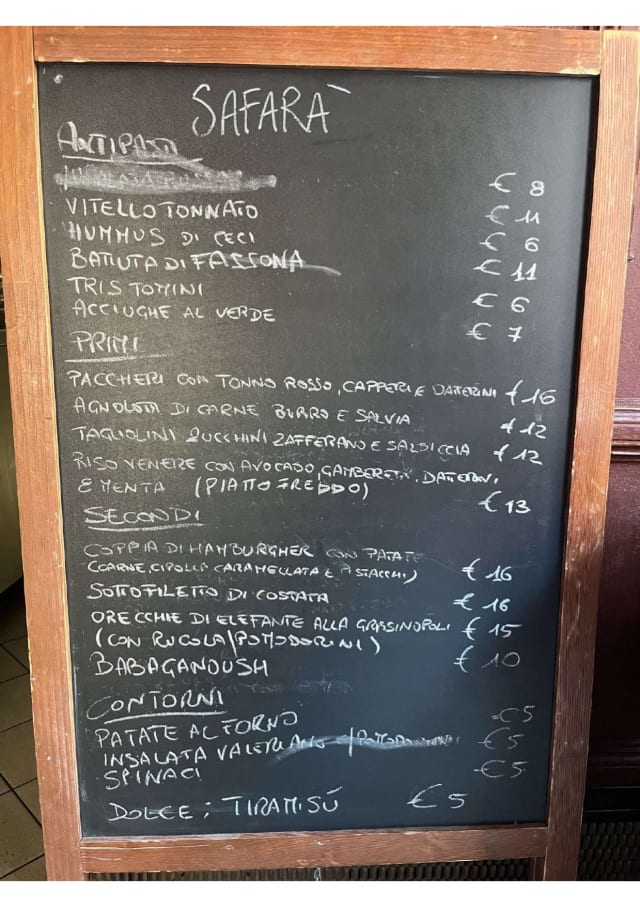 SAFARÀ
ANTIPASTI
€ 8
VITELLO TONNATO € 11
HUMMUS DI CECI € 6
BATTUTA DI FASSONA € 11
TRIS TOMINI € 6
ACCIUGHE AL VERDE € 7
PRIMI
PACCHERI CON TONNO ROSSO, CAPPERI E DATERINI € 16
AGNOLOTTI DI CARNE BURRO E SALVIA € 12
TAGLIOLINI ZUCCHINI ZAFFERANO E SALSICCIA € 12
RISO VENERE CON AVOCADO, GAMBERETTI, DATERINI,
E MENTA (PIATTO FREDDO) € 13
SECONDI
COPPIA DI HAMBURGHER CON PATATE
(CARNE, CIPOLLA CARAMELLATA E PISTACCHI) € 16
SOTTOFILETTO DI COSTATA € 16
ORECCHIE DI ELEFANTE ALLA GRASSINOPOLI € 15
(CON RUCOLA/POMODORINI)
BABAGANOUSH € 10
CONTORNI
PATATE AL FORNO €5
INSALATA VALERIANA €5
SPINACI €5
DOLCE: TIRAMISÚ €5